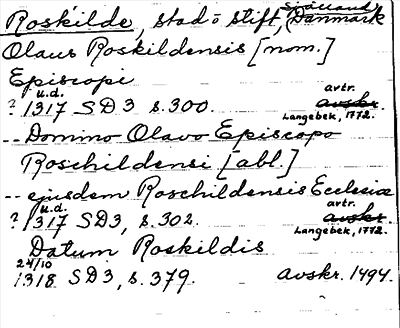 Roskilde, stad o stift, Själland Danmark
Olaus Roskildensis [nom.]
Episcopi
u.d. avtr.
? 1317 SD3 s.300. avskr.
Langebek, 1772.
-- Domino Olavo Episcopo
Roschildensi [abl.]
-- ejusdem Roschildensis Ecclesiæ
u.d. avtr.
? 1317 SD3, s.302. avskr.
Langebek, 1772.
Datum Roskildis
24/10
1318 SD3, s.379. avskr. 1494.